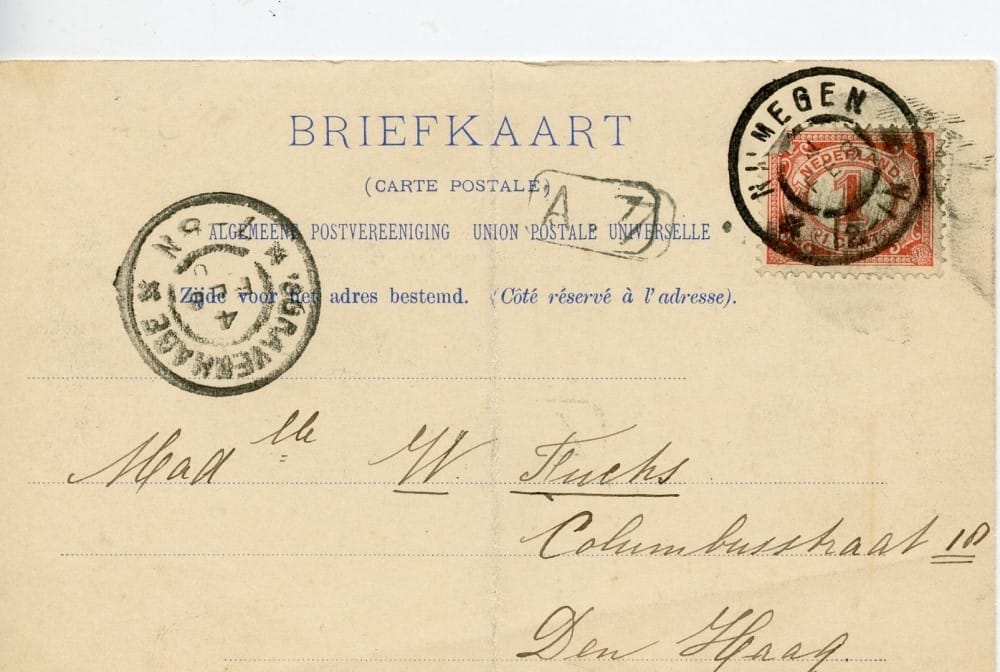 BRIEFKAART
(CARTE POSTALE)
ALGEMEENE POSTVEREENIGING UNION POSTALE UNIVERSELLE
Zijde voor het adres bestemd. (Côté réservé à l'adresse).
NIJMEGEN
NEDERLAND
1
A 37
'SGRAVENHAGE
4
Madlle W Fuchs
Columbusstraat 18
Den Haag.